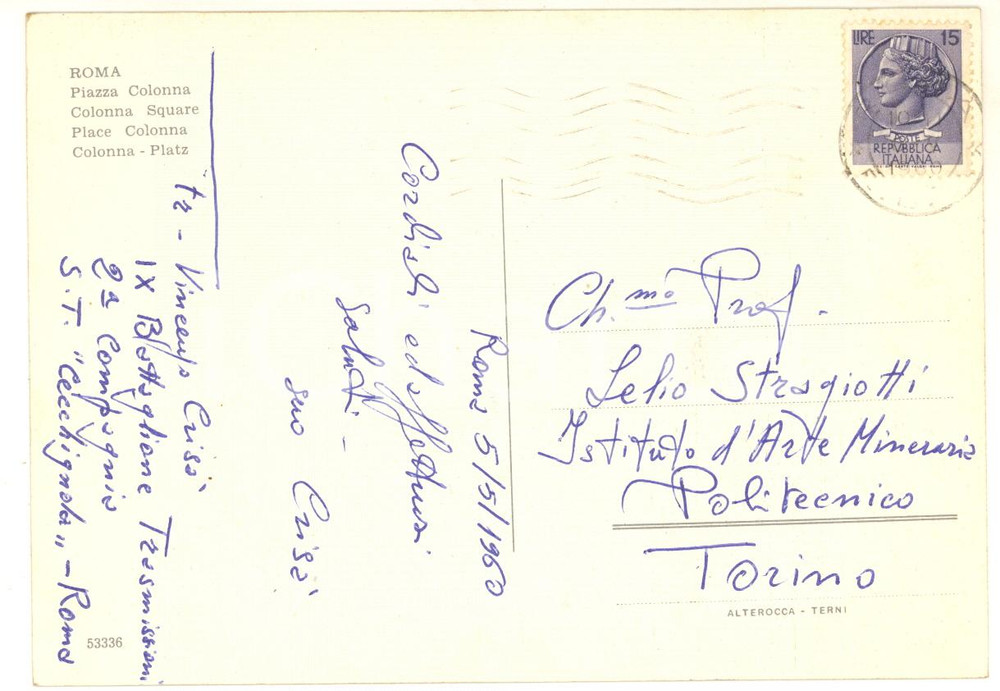 ROMA
Piazza Colonna
Colonna Square
Place Colonna
Colonna - Platz
LIRE 15
POSTE
REPVBBLICA
ITALIANA
Roma 5/5/1960
Cordiali ed affettuosi
saluti. -
suo Crisà
tr - Vincenzo Crisà
IX Battaglione Trasmissioni
2ª Compagnia
S.T. "Cecchignola" - Roma
Ch.mo Prof.
Lelio Stragiotti
Istituto d'Arte Mineraria
Politecnico
Torino
ALTEROCCA - TERNI
53336